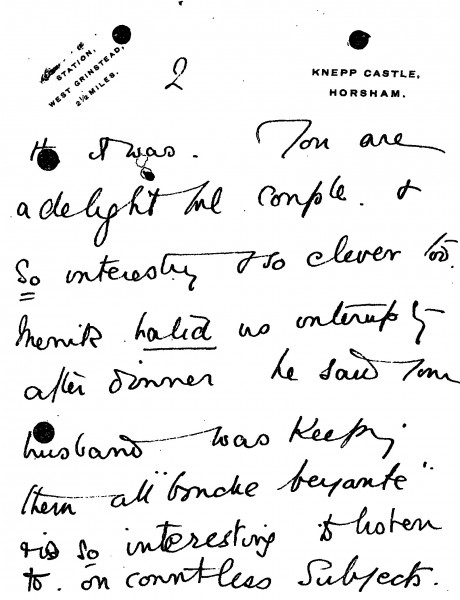 STATION,
WEST GRINSTEAD,
2½ MILES.
2
KNEPP CASTLE,
HORSHAM.
it was. You are
a delightful couple. &
so interesting & so clever too.
hated us interrupting
after dinner he said your
husband was keeping
them all "bouche beyante"
& is so interesting to listen
to. on countless subjects.